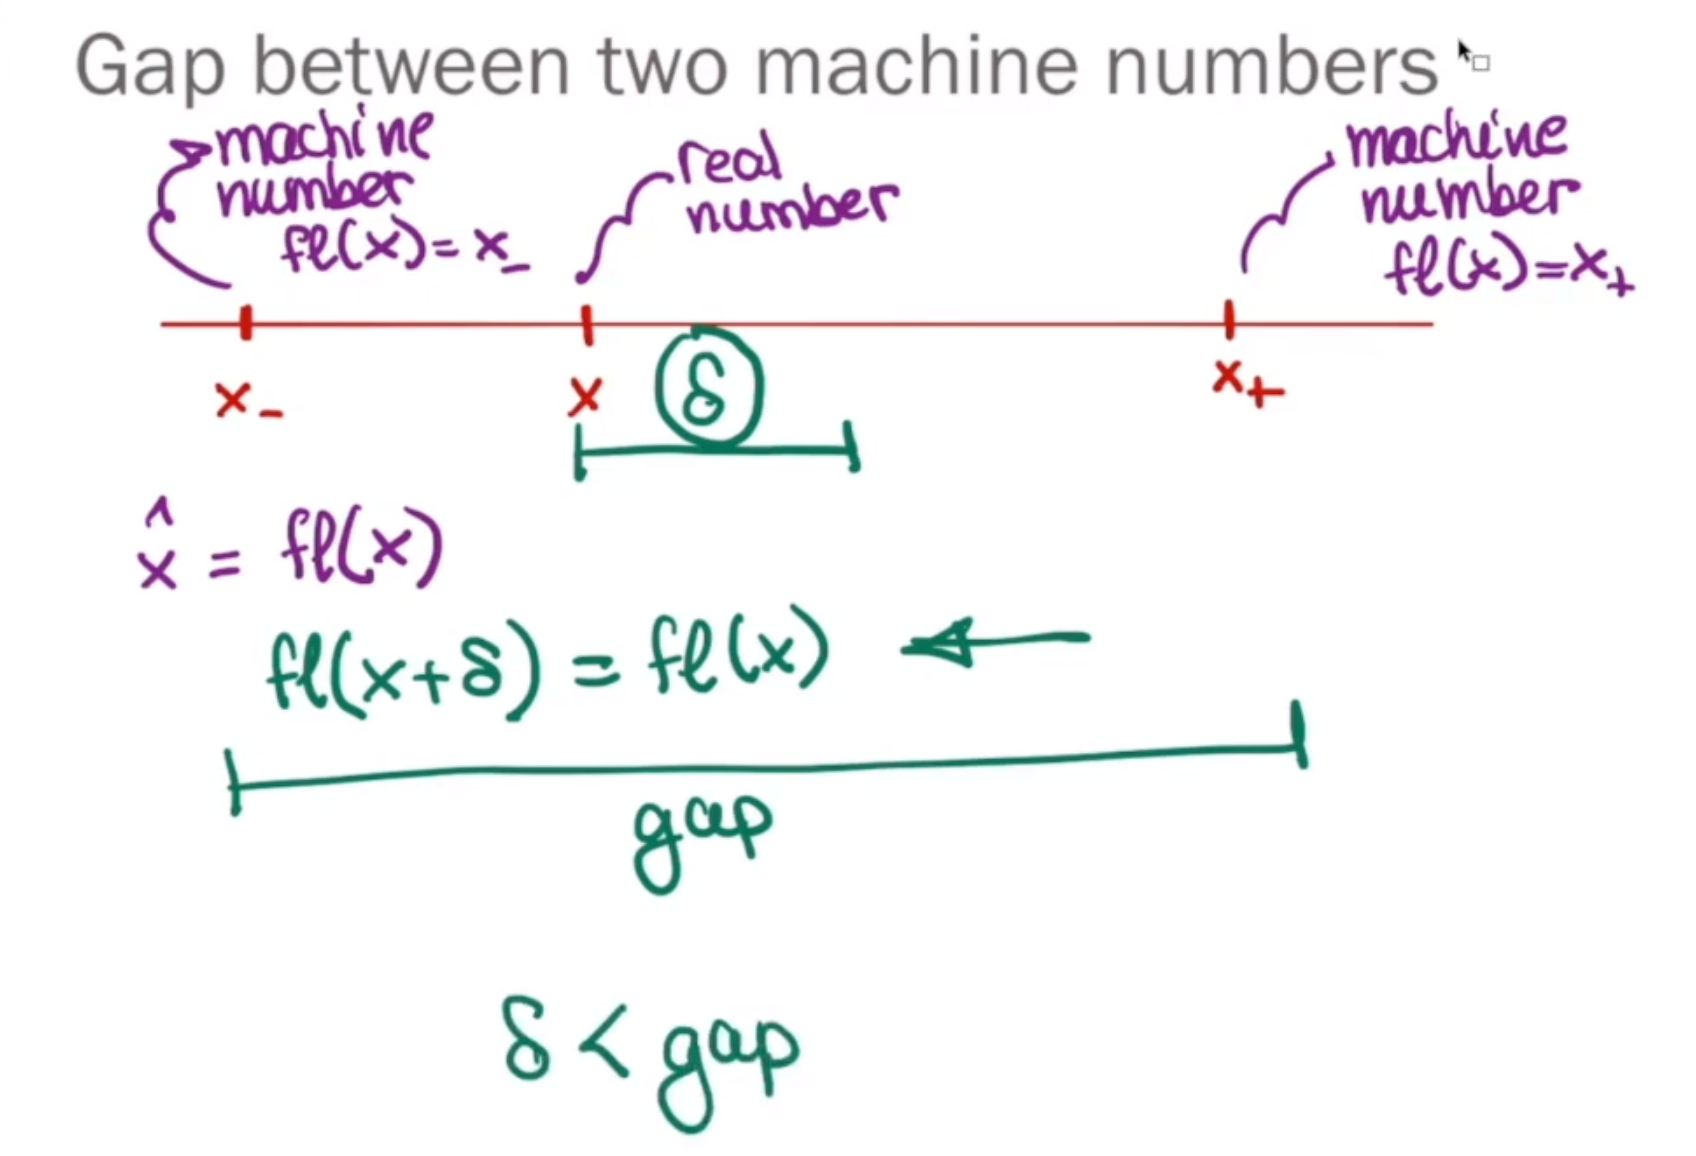 Gap between two machine numbers
machine
number
fl(x) = x₋
real
number
machine
number
fl(x) = x₊
x₋
x
δ
x₊
x̂ = fl(x)
fl(x+δ) = fl(x)
gap
δ < gap